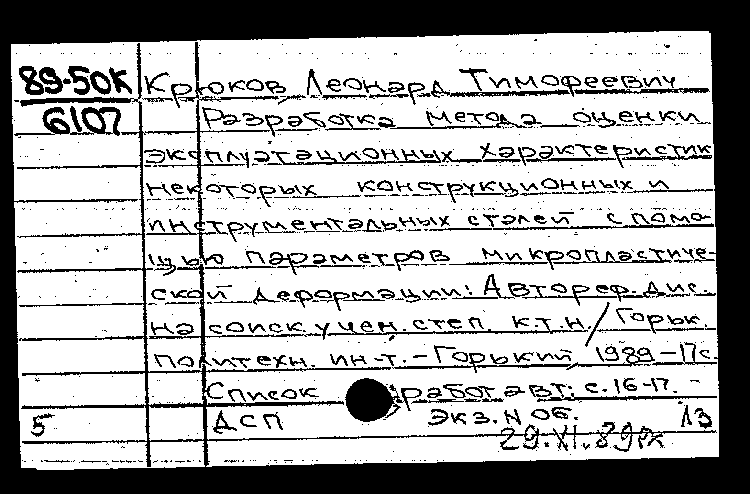 89-50К Крюков, Леонард Тимофеевич
6107 Разработка метода оценки
эксплуатационных характеристик
некоторых конструкционных и
инструментальных сталей с помо-
щью параметров микропластиче-
ской деформации: Автореф. дис.
на соиск. учен. степ. к.т.н./Горьк.
политехн. ин-т. - Горький, 1989 - 17с.
Список работ авт: с. 16-17. -
5 ДСП экз. N 06. ЛЗ
29.XI.89